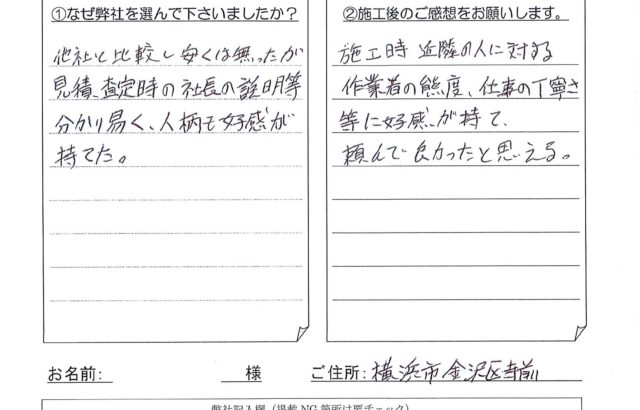 ①なぜ弊社を選んで下さいましたか？
他社と比較し安くは無ったが
見積、査定時の社長の説明等
分かり易く、人柄も好感が
持てた。
②施工後のご感想をお願いします。
施工時 近隣の人に対する
作業者の態度、仕事の丁寧さ
等に好感が持て、
頼んで良かったと思える。
お名前:　様　ご住所: 横浜市金沢区寺前
弊社記入欄（掲載NG箇所は要チェック）